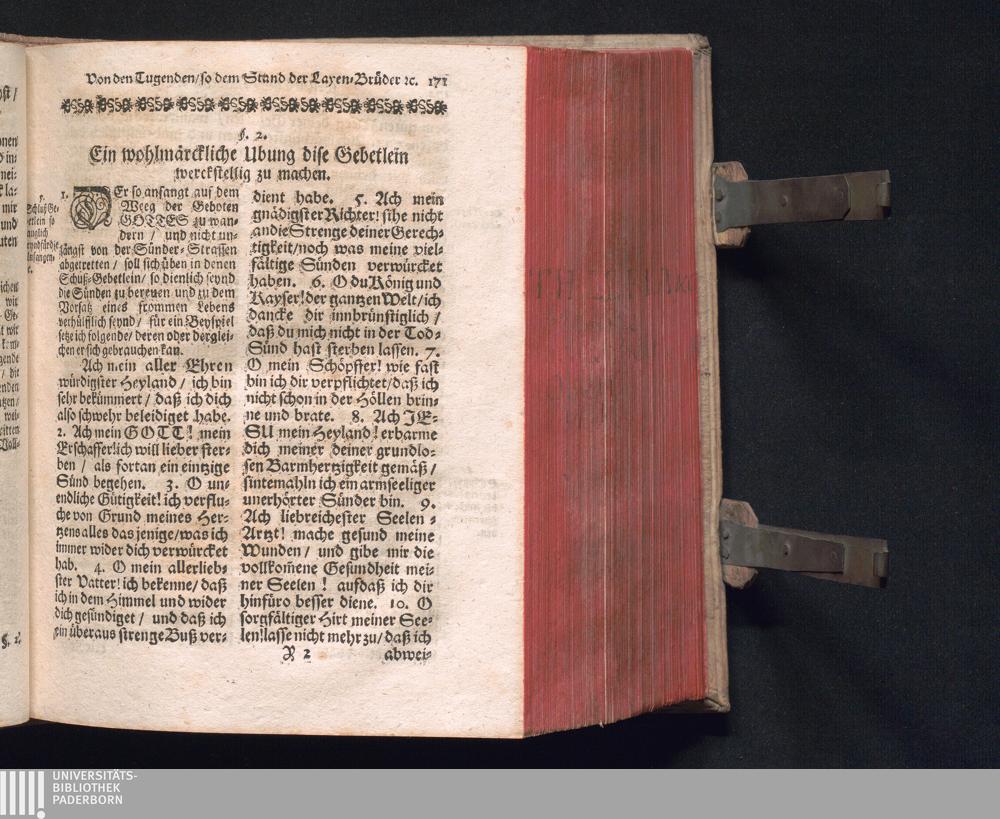 Von den Tugenden/ so dem Stand der Layen-Brüder ꝛc. 171
§. 2.
Ein wohlmärckliche Ubung dise Gebetlein
werckstellig zu machen.
1. DEr so anfangt auf dem
Weeg der Geboten
GOTTES zu wan-
dern / und nicht un-
längst von der Sünder-Strassen
abgetretten / soll sich üben in denen
Schuß-Gebetlein/ so dienlich seynd
die Sünden zu bereuen und zu dem
Vorsatz eines frommen Lebens
verhülfflich seynd / für ein Beyspiel
setze ich folgende/ deren oder derglei-
chen er sich gebrauchen kan.
Ach mein aller Ehren
würdigster Heyland / ich bin
sehr bekümmert / daß ich dich
also schwehr beleidiget habe.
2. Ach mein GOTT! mein
Erschaffer! ich will lieber ster-
ben / als fortan ein eintzige
Sünd begehen. 3. O un-
endliche Gütigkeit! ich verflu-
che von Grund meines Her-
tzens alles das jenige/ was ich
immer wider dich verwürcket
hab. 4. O mein allerlieb-
ster Vatter! ich bekenne/ daß
ich in dem Himmel und wider
dich gesündiget / und daß ich
ein überaus strenge Buß ver-
dient habe. 5. Ach mein
gnädigster Richter! sihe nicht
an die Strenge deiner Gerech-
tigkeit/ noch was meine viel-
fältige Sünden verwürcket
haben. 6. O du König und
Kayser! der gantzen Welt/ ich
dancke dir innbrünstiglich /
daß du mich nicht in der Tod-
Sünd hast sterben lassen. 7.
O mein Schöpffer! wie fast
bin ich dir verpflichtet/ daß ich
nicht schon in der Höllen brin-
ne und brate. 8. Ach JE-
SU mein Heyland! erbarme
dich meiner deiner grundlo-
sen Barmhertzigkeit gemäß /
sintemahln ich ein armseeliger
unerhörter Sünder bin. 9.
Ach liebreichester Seelen-
Artzt! mache gesund meine
Wunden / und gibe mir die
vollkom̃ene Gesundheit mei-
ner Seelen ! aufdaß ich dir
hinfüro besser diene. 10. O
sorgfältiger Hirt meiner See-
len! lasse nicht mehr zu/ daß ich
Y 2 abwei-
UNIVERSITÄTS-
BIBLIOTHEK
PADERBORN